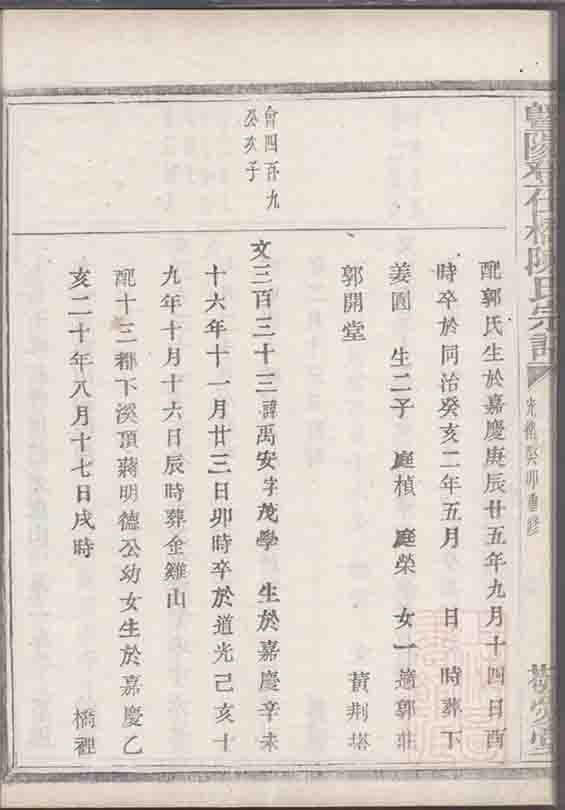 陳氏宗譜
光緒癸卯重修
配郭氏生於嘉慶庚辰廿五年九月十四日酉
時卒於同治癸亥二年五月 日 時葬下
姜園 生二子 庭楨 庭榮 女一適郭莊
郭開堂 黃荆塔
會四百九
癸亥子
文三百三十三諱禹安字茂學 生於嘉慶辛未
十六年十一月廿三日卯時卒於道光己亥十
九年十月十六日辰時葬金雞山
配十三都下溪頂蔣明德公幼女生於嘉慶乙
亥二十年八月十七日戌時 橋裡